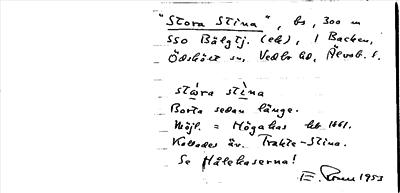 "Stora Stina", bs, 300 m
SSO Bälgtj. (ek), i Backen,
Ödskölt sn, Vedbo hd, Älvsb. l.
stàra stìna
Borta sedan länge.
Möjl. = Högakas hb 1661.
Kallades äv. Trakte-Stina.
Se Hålekaserna!
1953